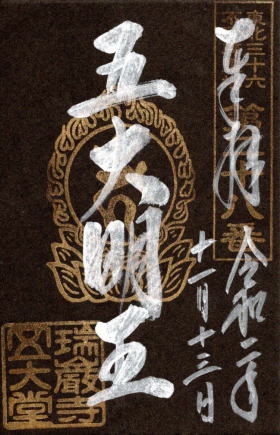 東北三十六
八番
奉拝
令和二年
十一月十三日
五大明王
瑞巖寺
五大堂